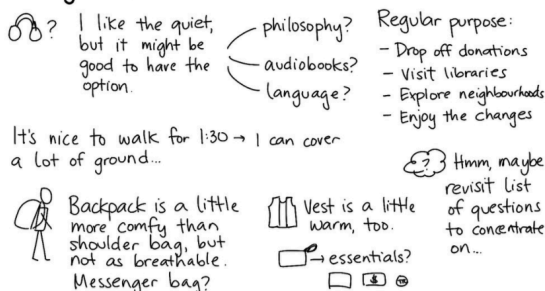 ?
I like the quiet,
but it might be
good to have the
option.
philosophy?
audiobooks?
language?
Regular purpose:
- Drop off donations
- Visit libraries
- Explore neighbourhoods
- Enjoy the changes
It's nice to walk for 1:30 → I can cover
a lot of ground...
? Hmm, maybe
revisit list
of questions
to concentrate
on...
Backpack is a little
more comfy than
shoulder bag, but
not as breathable.
Messenger bag?
Vest is a little
warm, too.
→ essentials?
$